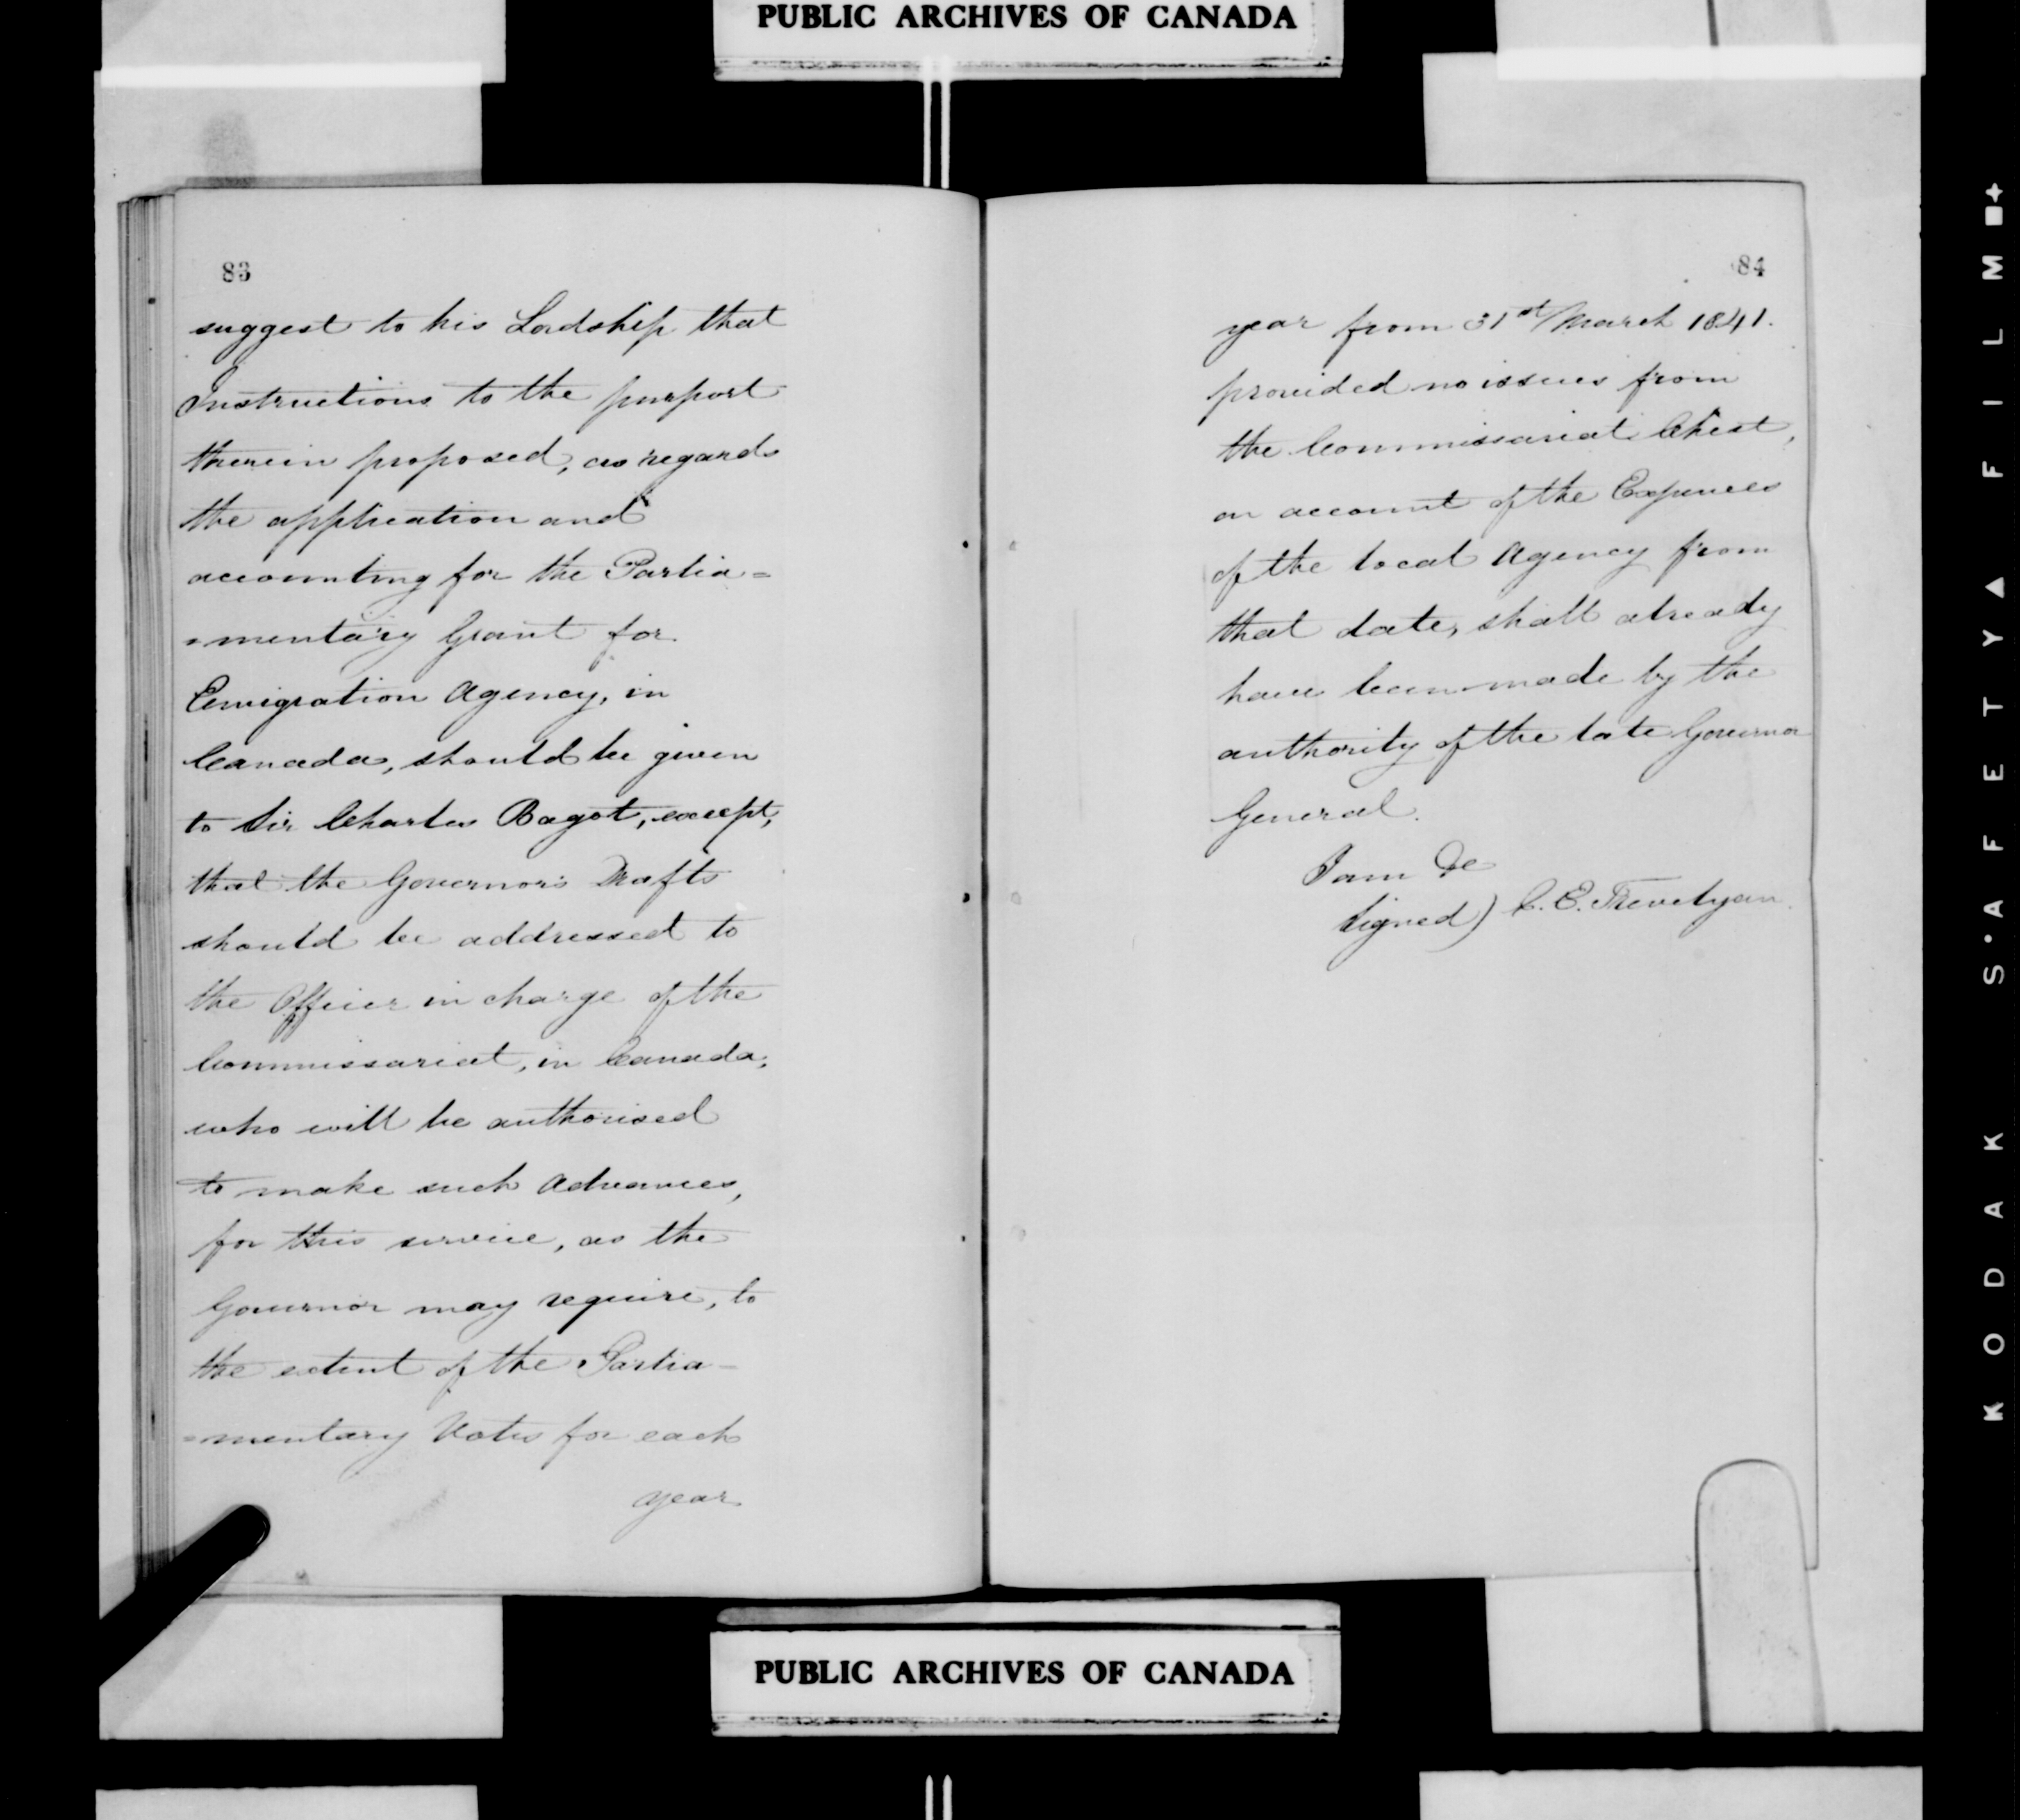 PUBLIC ARCHIVES OF CANADA
83
suggest to his Lordship that
Instructions to the purport
therein proposed, as regards
the application and
accounting for the Parlia=
=mentary Grant for
Emigration Agency, in
Canada, should be given
to Sir Charles Bagot, except,
that the Governor's Drafts
should be addressed to
the Officer in charge of the
Commissariat, in Canada,
who will be authorised
to make such Advances,
for this service, as the
Governor may require, to
the extent of the Parlia-
=mentary Votes for each
year
84
year from 31st March 1841.
provided no issues from
the Commissariat Chest,
on account of the Expenses
of the local Agency from
that date, shall already
have been made by the
authority of the late Governor
General.
I am &c
Signed) C. E. Trevelyan.
PUBLIC ARCHIVES OF CANADA
KODAK S·AFETY▲ FILM ■+